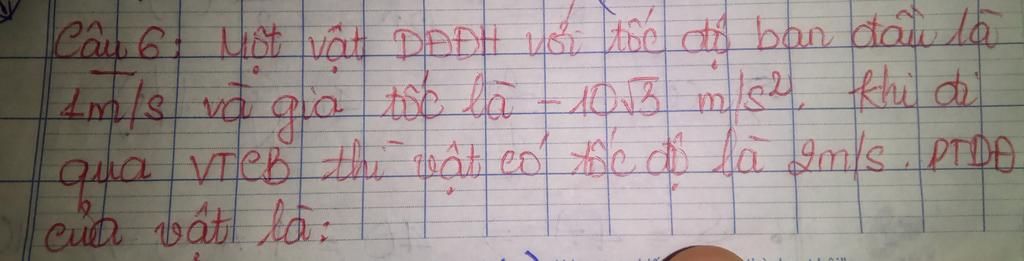 Câu 6: Một vật DĐĐH với tốc độ ban đầu là
1m/s và gia tốc là -10√3 m/s². Khi đi
qua VTCB thì vật có tốc độ là 2m/s. PTDĐ
của vật là: